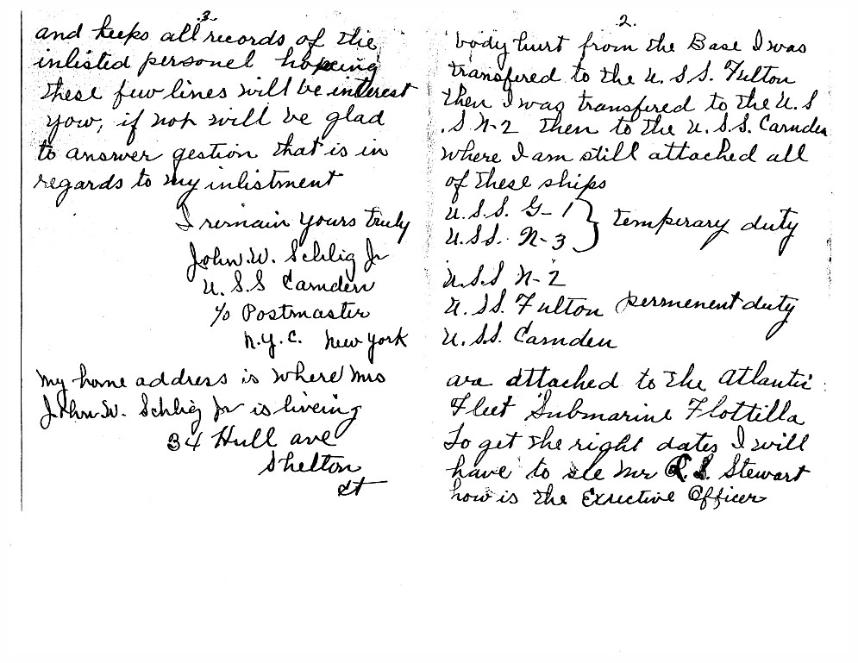 2.
body hurt from the Base I was
transfered to the U.S.S. Fulton
then I was transfered to the U.S
.S N-2 then to the U.S.S. Camden
where I am still attached all
of these ships
U.S.S. G-1
U.S.S. N-3 } temperary duty
U.S.S N-2
U.S.S. Fulton permenent duty
U.S.S. Camden
are attached to the Atlantic
Fleet Submarine Flottilla
To get the right dates I will
have to see Mr R.S. Stewart
how is the Exective Officer
3.
and keeps all records of the
inlisted personel hopeing
these few lines will be interest
yow, if not will be glad
to answer gestion that is in
regards to my inlistment
I remain yours truly
John W. Schlig Jr
U.S.S Camden
c/o Postmaster
N.Y.C. New York
My home address is where Mrs
John W. Schlig Jr is liveing
34 Hull ave
Shelton
Ct